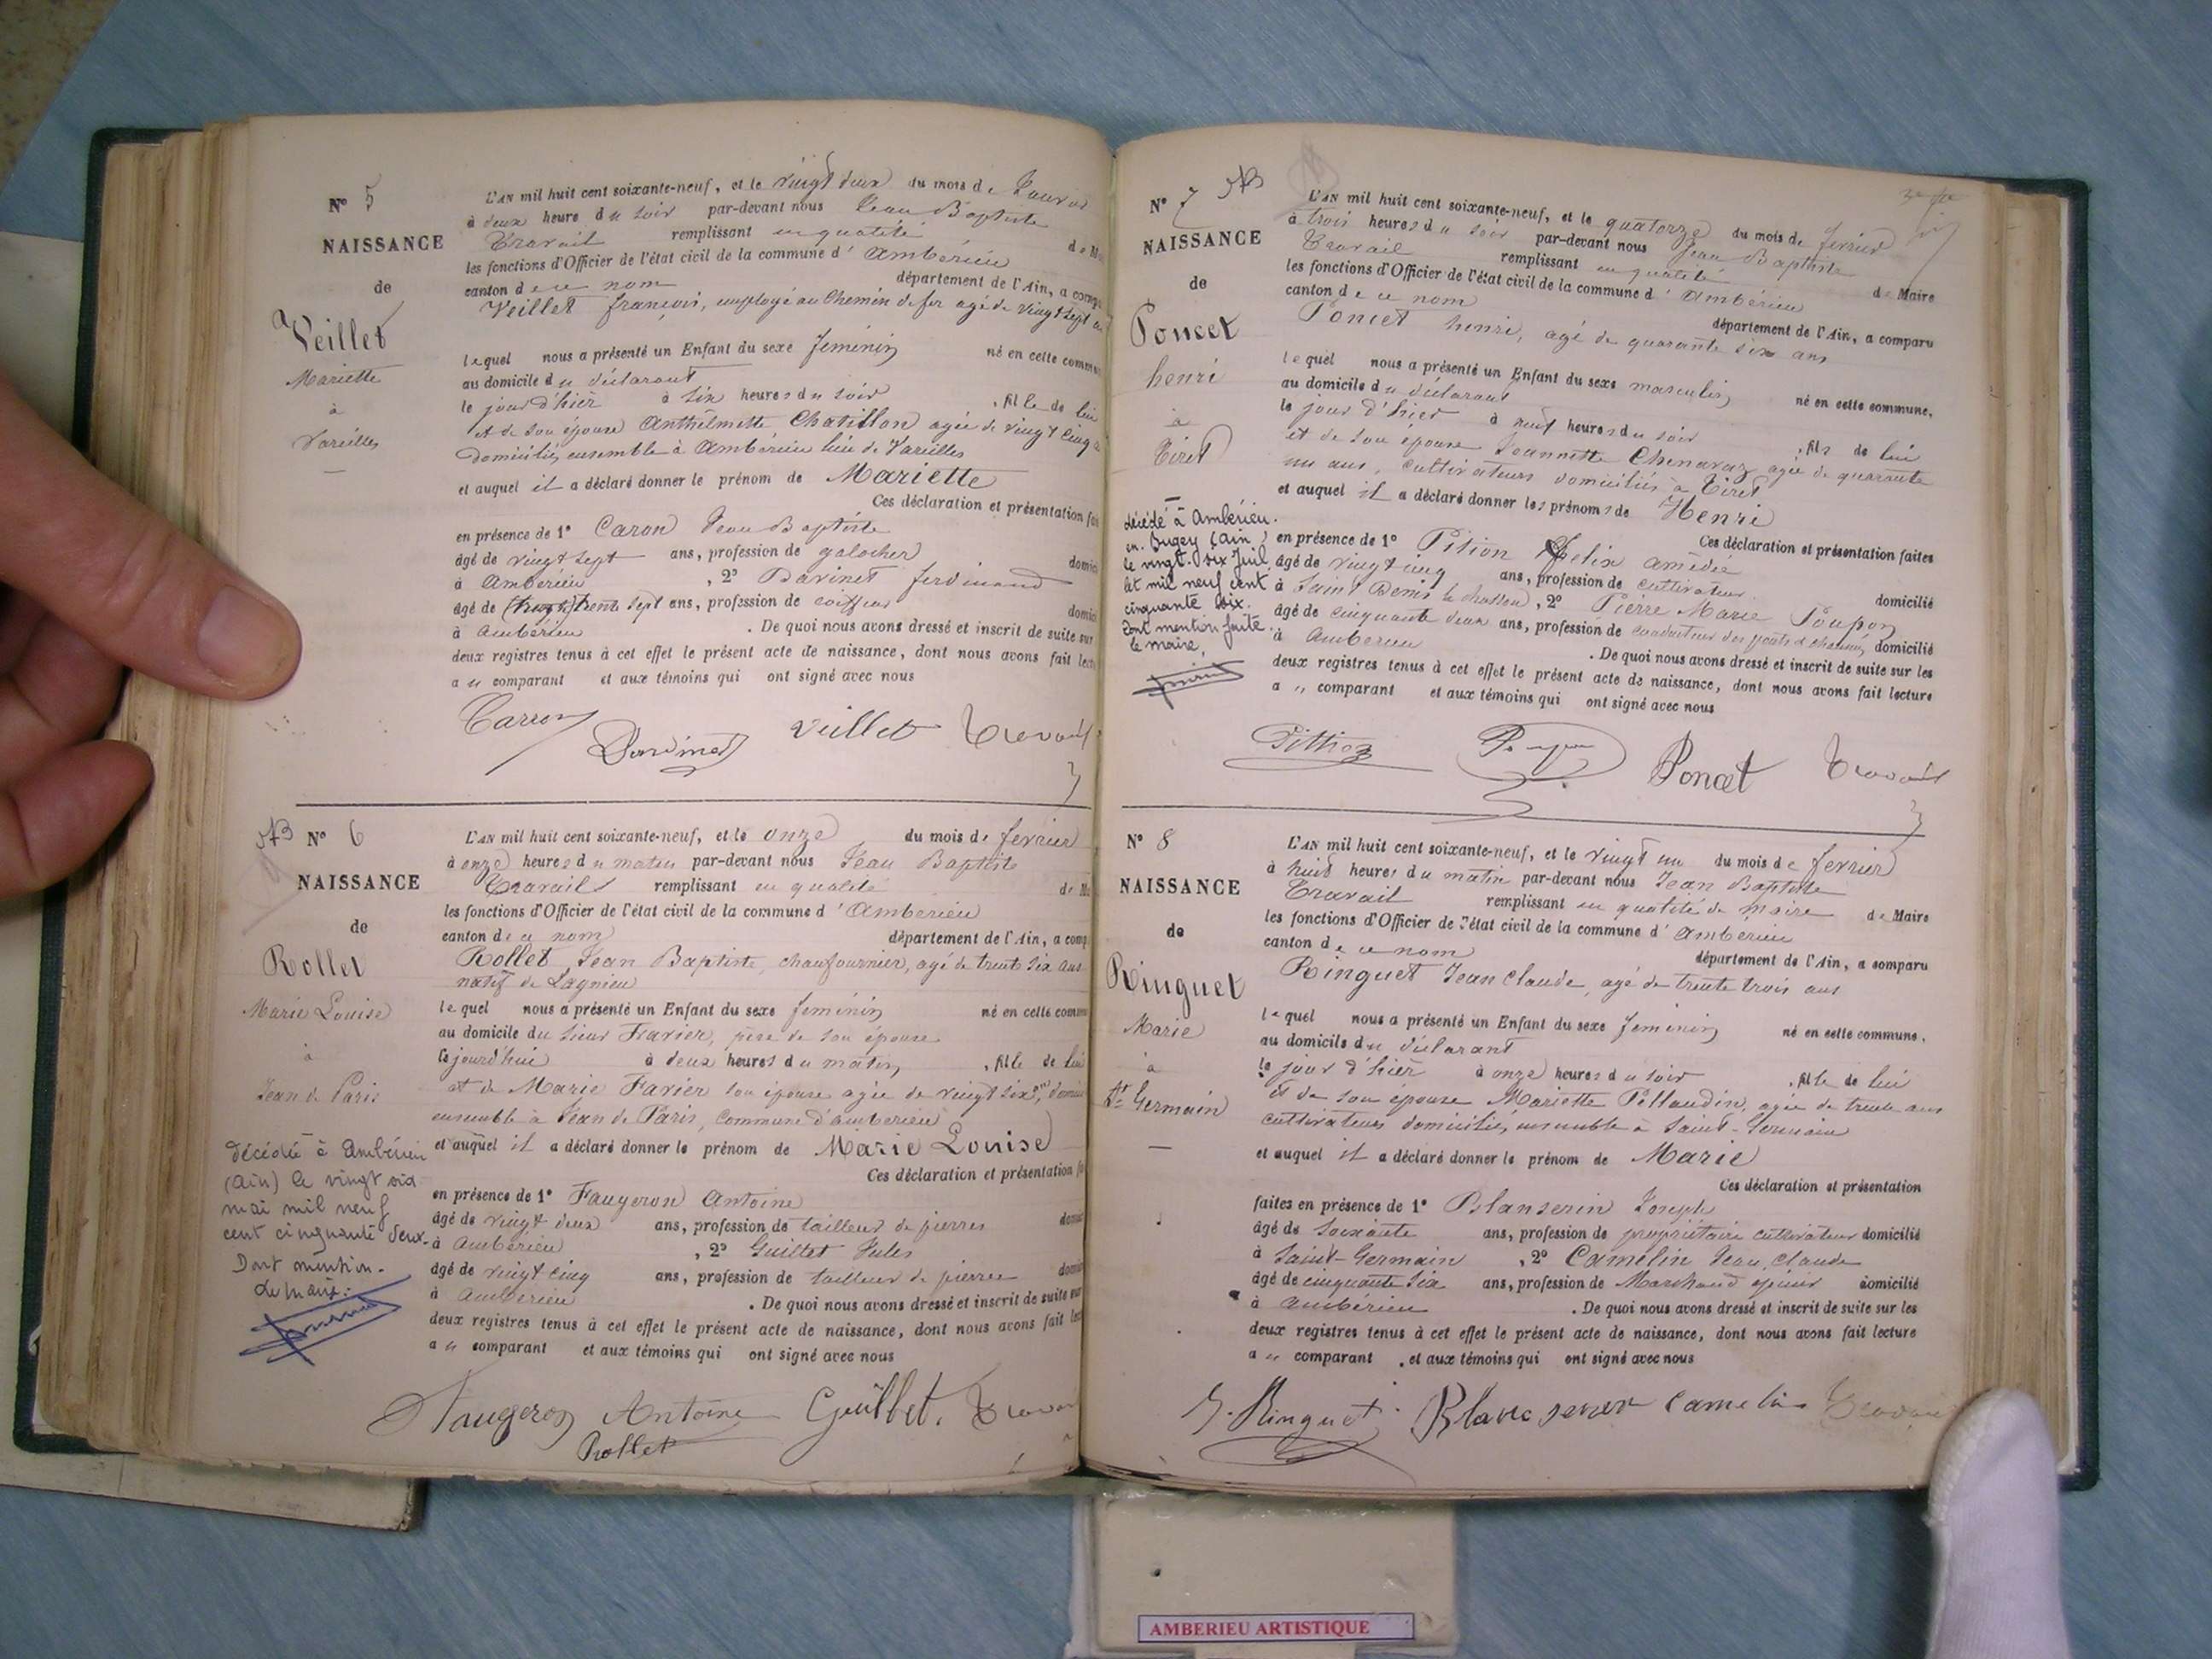 N° 5
NAISSANCE
de
Veillet
Mariette
à
Vareilles
L'AN mil huit cent soixante-neuf, et le vingt deux du mois de Janvier
à deux heure du soir par-devant nous Jean Baptiste
Travail remplissant en qualité de
les fonctions d'Officier de l'état civil de la commune d'Ambérieu
canton de ce nom département de l'Ain, a comp
Veillet françois, employé au Chemin de fer agé de vingt sept
lequel nous a présenté un Enfant du sexe féminin né en cette comm
au domicile du déclarant
le jour d'hier à six heures du soir, fille de lui
et de son épouse Anthelmette Chatillon agée de vingt cinq
domiciliés ensemble à Ambérieu lieu de Vareilles
et auquel il a déclaré donner le prénom de Mariette
Ces déclaration et présentation
en présence de 1° Caron Jean Baptiste
âgé de vingt sept ans, profession de galocher domici
à Ambérieu, 2° Davinet ferdinand
âgé de (vingt) trente sept ans, profession de coiffeur domi
à Ambérieu. De quoi nous avons dressé et inscrit de suite sur
deux registres tenus à cet effet le présent acte de naissance, dont nous avons fait lect
au comparant et aux témoins qui ont signé avec nous
Carron Davinet Veillet Travail
N° 6
NAISSANCE
de
Rollet
Marie Louise
à
Jean de Paris
décédée à Ambérieu
(Ain) le vingt six
mai mil neuf
cent cinquante deux.
Dont mention.
Le maire:
L'AN mil huit cent soixante-neuf, et le onze du mois de fevrier
à onze heures du matin par-devant nous Jean Baptiste
Travail remplissant en qualité de
les fonctions d'Officier de l'état civil de la commune d'Ambérieu
canton de ce nom département de l'Ain, a comp
Rollet Jean Baptiste, chaufournier, agé de trente six ans
natif de Lagnieu
lequel nous a présenté un Enfant du sexe féminin né en cette comm
au domicile du sieur Favier, père de son épouse
le jourd'hui à deux heures du matin, fille de lui
et de Marie Favier son épouse agée de vingt six ans,
ensemble à Jean de Paris, commune d'ambérieu
et auquel il a déclaré donner le prénom de Marie Louise
Ces déclaration et présentation
en présence de 1° Faugeron Antoine
âgé de vingt deux ans, profession de tailleur de pierres
à Ambérieu, 2° Guillet Jules
âgé de vingt cinq ans, profession de tailleur de pierres
à Ambérieu. De quoi nous avons dressé et inscrit de suite sur
deux registres tenus à cet effet le présent acte de naissance, dont nous avons fait lec
au comparant et aux témoins qui ont signé avec nous
Faugeron Antoine Guillet. Travail
Rollet
N° 7
NAISSANCE
de
Poncet
henri
à
Tiret
décédé à Ambérieu.
en. Bugey (Ain)
le vingt. six Juil
let mil neuf cent
cinquante six.
Dont mention faite.
Le maire,
L'AN mil huit cent soixante-neuf, et le quatorze du mois de fevrier
à trois heures du soir par-devant nous Jean Baptiste
Travail remplissant en qualité de Maire
les fonctions d'Officier de l'état civil de la commune d'Ambérieu
canton de ce nom département de l'Ain, a comparu
Poncet henri, agé de quarante six ans
lequel nous a présenté un Enfant du sexe masculin né en cette commune,
au domicile du déclarant
le jour d'hier à neuf heures du soir, fils de lui
et de son épouse Jeannette Chenavaz agée de quarante
un ans, cultivateurs domiciliés à Tiret
et auquel il a déclaré donner les prénoms de Henri
Ces déclaration et présentation faites
en présence de 1° Pition Felix amédée
âgé de vingt cinq ans, profession de cultivateur domicilié
à Saint Denis le chosson, 2° Pierre Marie Poupon
âgé de cinquante deux ans, profession de conducteur des ponts et chaussés domicilié
à Ambérieu. De quoi nous avons dressé et inscrit de suite sur les
deux registres tenus à cet effet le présent acte de naissance, dont nous avons fait lecture
au comparant et aux témoins qui ont signé avec nous
Pittion Poncet Travail
N° 8
NAISSANCE
de
Ringuet
Marie
à
St Germain
L'AN mil huit cent soixante-neuf, et le vingt un du mois de fevrier
à huit heures du matin par-devant nous Jean Baptiste
Travail remplissant en qualité de maire de Maire
les fonctions d'Officier de l'état civil de la commune d'Ambérieu
canton de ce nom département de l'Ain, a comparu
Ringuet Jean Claude, agé de trente trois ans
lequel nous a présenté un Enfant du sexe féminin né en cette commune.
au domicile du déclarant
le jour d'hier à onze heures du soir, fille de lui
et de son épouse Mariette Pellaudin, agée de trente ans
cultivateurs domiciliés ensemble à Saint-Germain
et auquel il a déclaré donner le prénom de Marie
Ces déclaration et présentation
faites en présence de 1° Blanserin Joseph
âgé de soixante ans, profession de propriétaire cultivateur domicilié
à Saint-Germain, 2° Camelin Jean Claude
âgé de cinquante six ans, profession de Marchand épicier domicilié
à Ambérieu. De quoi nous avons dressé et inscrit de suite sur les
deux registres tenus à cet effet le présent acte de naissance, dont nous avons fait lecture
au comparant, et aux témoins qui ont signé avec nous
J. Ringuet Camelin Travail
AMBERIEU ARTISTIQUE